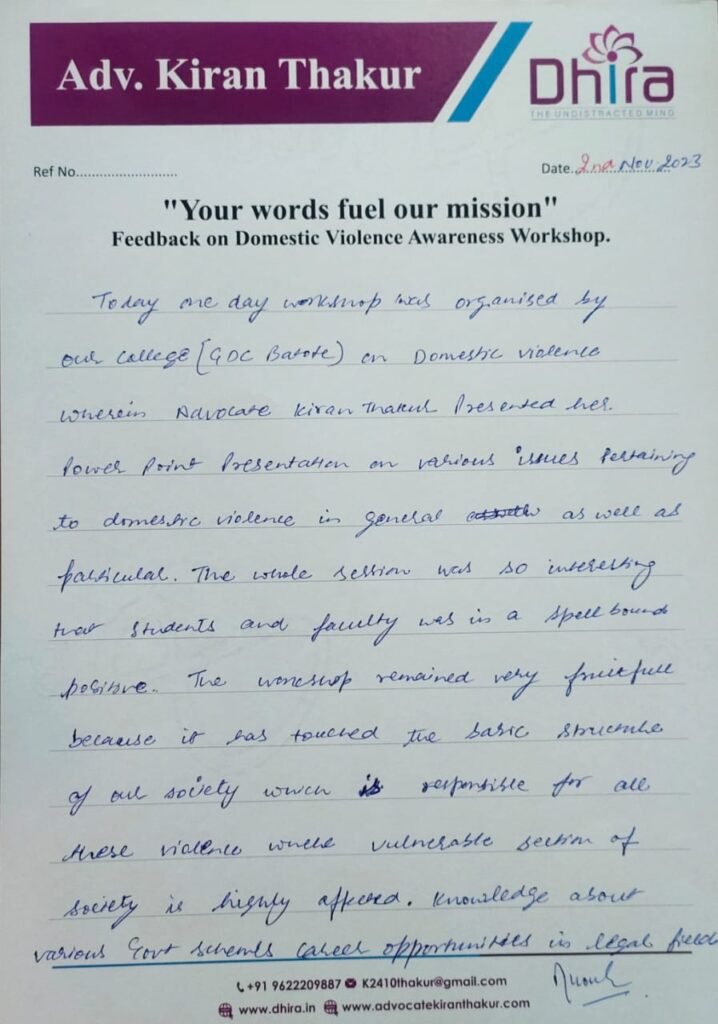 Adv. Kiran Thakur
Dhira
THE UNDISTRACTED MIND
Ref No..........................
Date..2nd Nov. 2023
"Your words fuel our mission"
Feedback on Domestic Violence Awareness Workshop.
Today one day workshop was organised by
our college (GDC Batote) on Domestic violence
wherein Advocate Kiran Thakur Presented her
Power Point Presentation on various issues Pertaining
to domestic violence in general as well as
particular. The whole session was so interesting
that students and faculty was in a spell bound
positive.. The workshop remained very fruitfull
because it has touched the basic structure
of our society which is responsible for all
these violence where vulnerable section of
society is highly affected. Knowledge about
various Govt schemes career opportunities in legal field
+91 9622209887 K2410thakur@gmail.com
www.dhira.in www.advocatekiranthakur.com